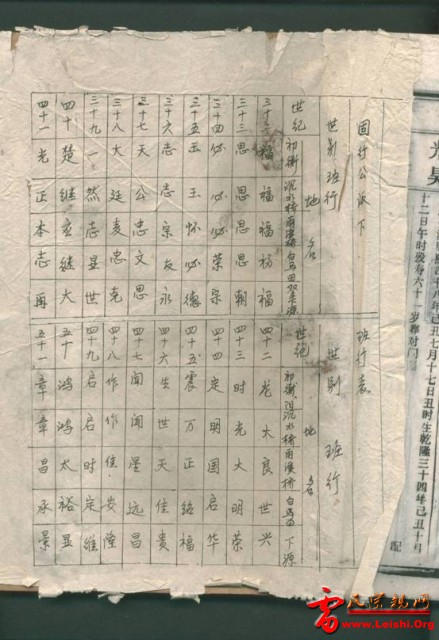 光昊
十八年己丑七月十七日丑时生乾隆三十四年己丑十月
十二日午时没寿六十一岁葬对门
配
固行公派下
世别 班行
世纪 地名
初衡 沉水桥 南溪桥 白马田
三十三 思 思 思 朝
三十四 必 必 荣 宗
三十五 玉 玉 怀 必 德
三十六 志 志 宗 友 永
三十七 天 公 忠 文 思
三十八 大 廷 忠 克
三十九 一 然 志 显 世
四十 楚 继 继 大
四十一 光 正 本 志 再
班行表
世别 班行
世纪 地名
初衡 沉水桥 南溪桥 白马田 下源
四十二 龙 大 良 世 兴
四十三 时 光 大 明 荣
四十四 定 明 国 启 华
四十五 震 万 正 銘 福
四十六 生 世 天 佳 贵
四十七 闻 闻 星 远 昌
四十八 作 作 佳 安 隆
四十九 启 启 时 定 维
五十 鸿 鸿 太 裕 显
五十一 章 章 昌 承 景
雷氏宗親网
http://www.Leishi.Org